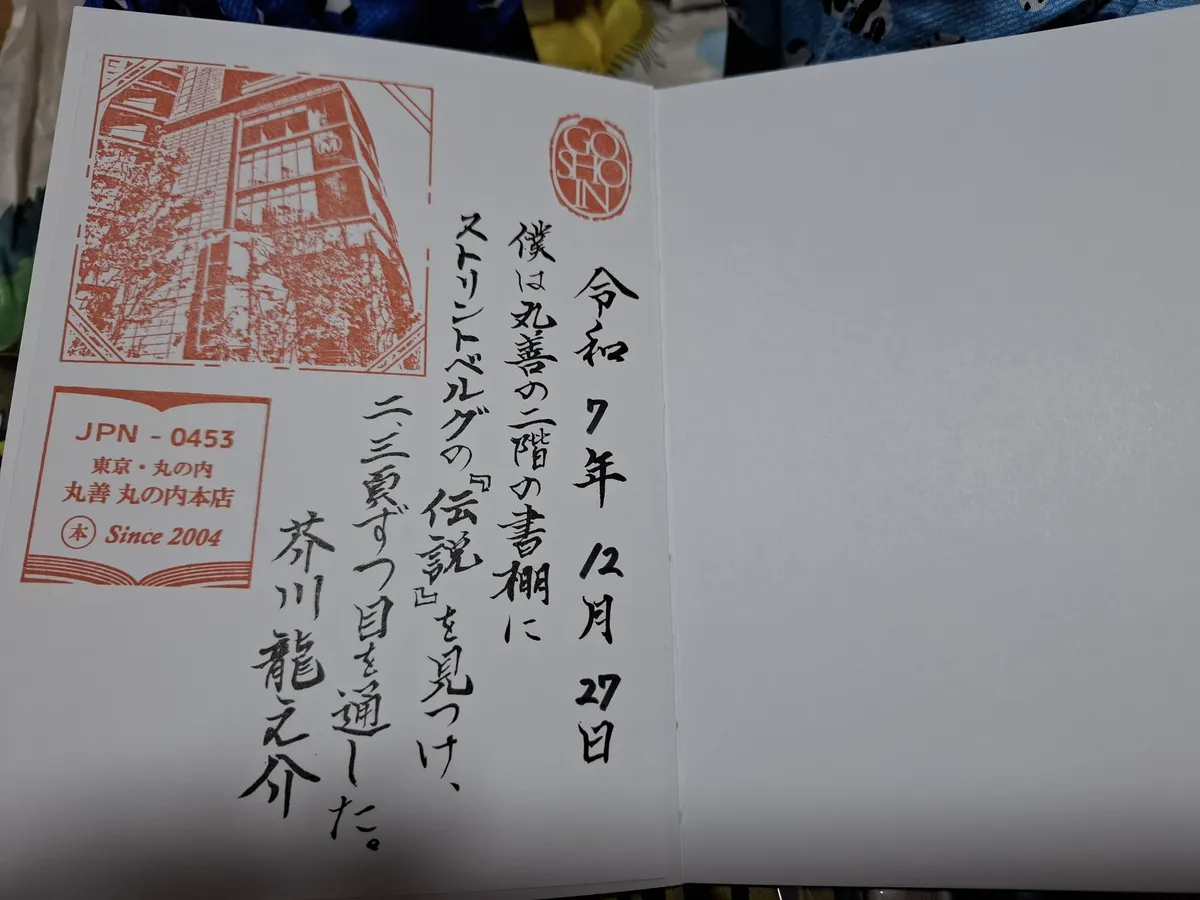 GO
SHO
IN
令和7年12月27日
僕は丸善の二階の書棚に
ストリントベルグの『伝説』を見つけ、
二、三頁ずつ目を通した。
芥川龍之介
M
JPN - 0453
東京・丸の内
丸善 丸の内本店
本 Since 2004